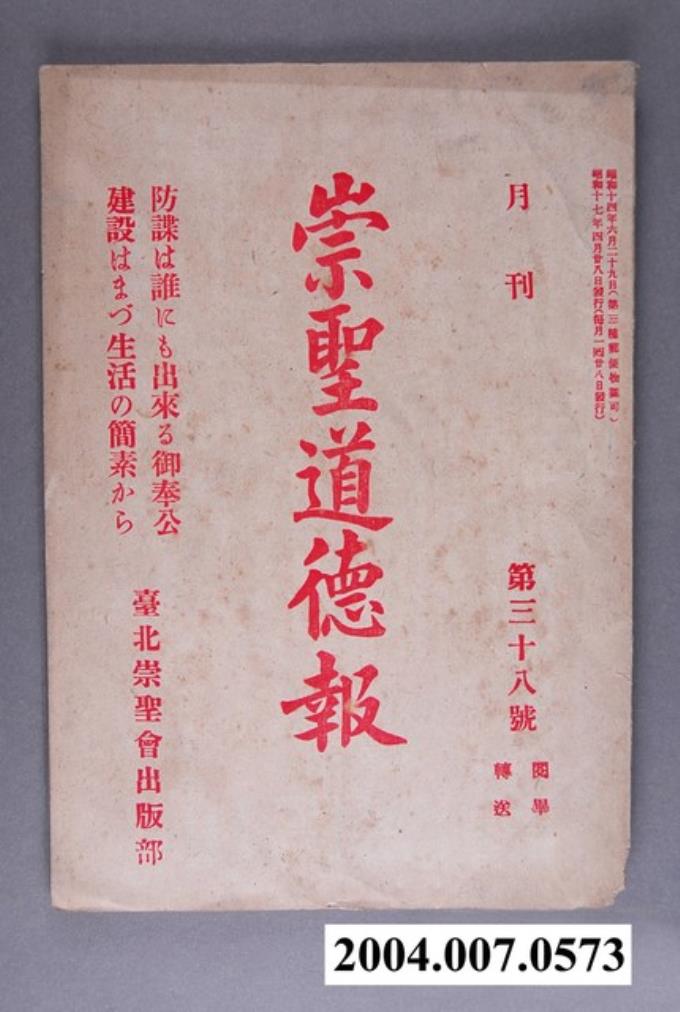 昭和十四年六月二十九日(第三種郵便物認可)
昭和十七年四月廿八日發行(每月一回廿八日發行)
月刊
第三十八號
閱畢
轉送
崇聖道德報
防諜は誰にも出來る御奉公
建設はまづ生活の簡素から
臺北崇聖會出版部
2004.007.0573